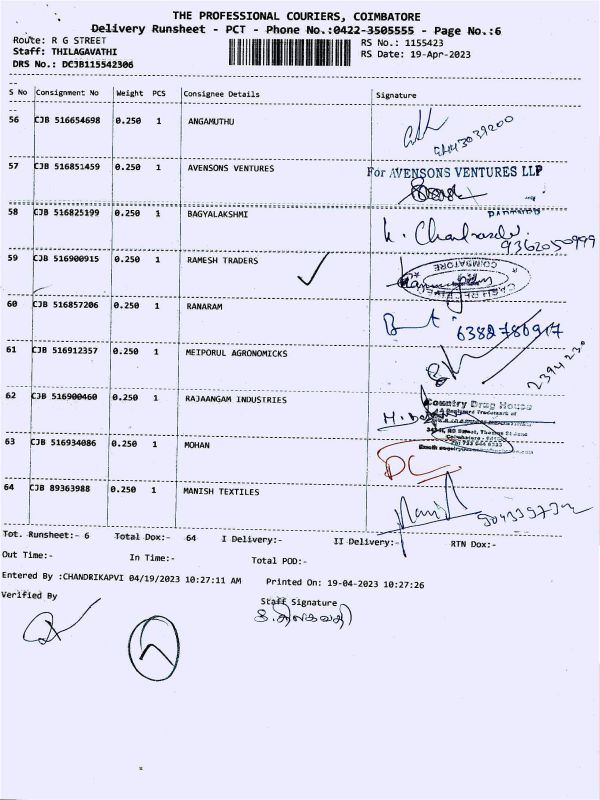 THE PROFESSIONAL COURIERS, COIMBATORE
Delivery Runsheet - PCT - Phone No.:0422-3505555 - Page No.:6
Route: R G STREET RS No.: 1155423
Staff: THILAGAVATHI RS Date: 19-Apr-2023
DRS No.: DCJB115542306
S No Consignment No Weight PCS Consignee Details Signature
56 CJB 516654698 0.250 1 ANGAMUTHU
57 CJB 516851459 0.250 1 AVENSONS VENTURES For AVENSONS VENTURES LLP
58 CJB 516825199 0.250 1 BAGYALAKSHMI
9362050999
59 CJB 516900915 0.250 1 RAMESH TRADERS COIMBATORE
60 CJB 516857206 0.250 1 RANARAM
61 CJB 516912357 0.250 1 MEIPORUL AGRONOMICKS
62 CJB 516900460 0.250 1 RAJAANGAM INDUSTRIES Country Drug House
63 CJB 516934086 0.250 1 MOHAN DC
64 CJB 89363988 0.250 1 MANISH TEXTILES
Tot. Runsheet:- 6 Total Dox:- 64 I Delivery:- II Delivery:- RTN Dox:-
Out Time:- In Time:- Total POD:-
Entered By :CHANDRIKAPVI 04/19/2023 10:27:11 AM Printed On: 19-04-2023 10:27:26
Verified By Staff Signature